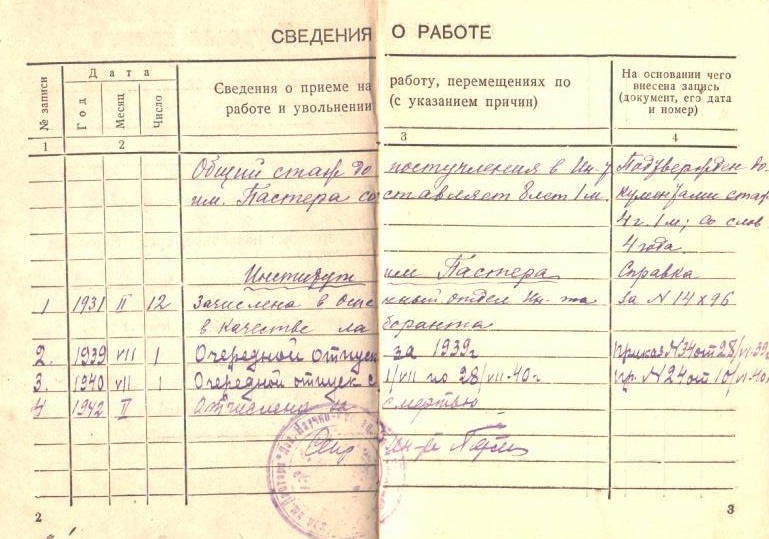 СВЕДЕНИЯ О РАБОТЕ
№ записи
Дата
Год
Месяц
Число
Сведения о приеме на работу, перемещениях по
работе и увольнении (с указанием причин)
На основании чего
внесена запись
(документ, его дата
и номер)
1 2 3 4
Общий стаж до поступления в Ин-т
им. Пастера составляет 8 лет 1 м.
Подтвержден до-
кументами стаж
4 г. 1 м; со слов
4 года.
Институт им Пастера Справка
1 1931 II 12 Зачислена в ный отдел Ин-та за N 14 х 96
в качестве лаборанта
2. 1939 VII 1 Очередной отпуск за 1939г Приказ N34 от 28/VI-39г
3. 1940 VII 1 Очередной отпуск с 1/VII по 28/VII-40г. Пр. N24 от 10/VI-40г
4 1942 II Отчислена смертью
Ин-та
2 3